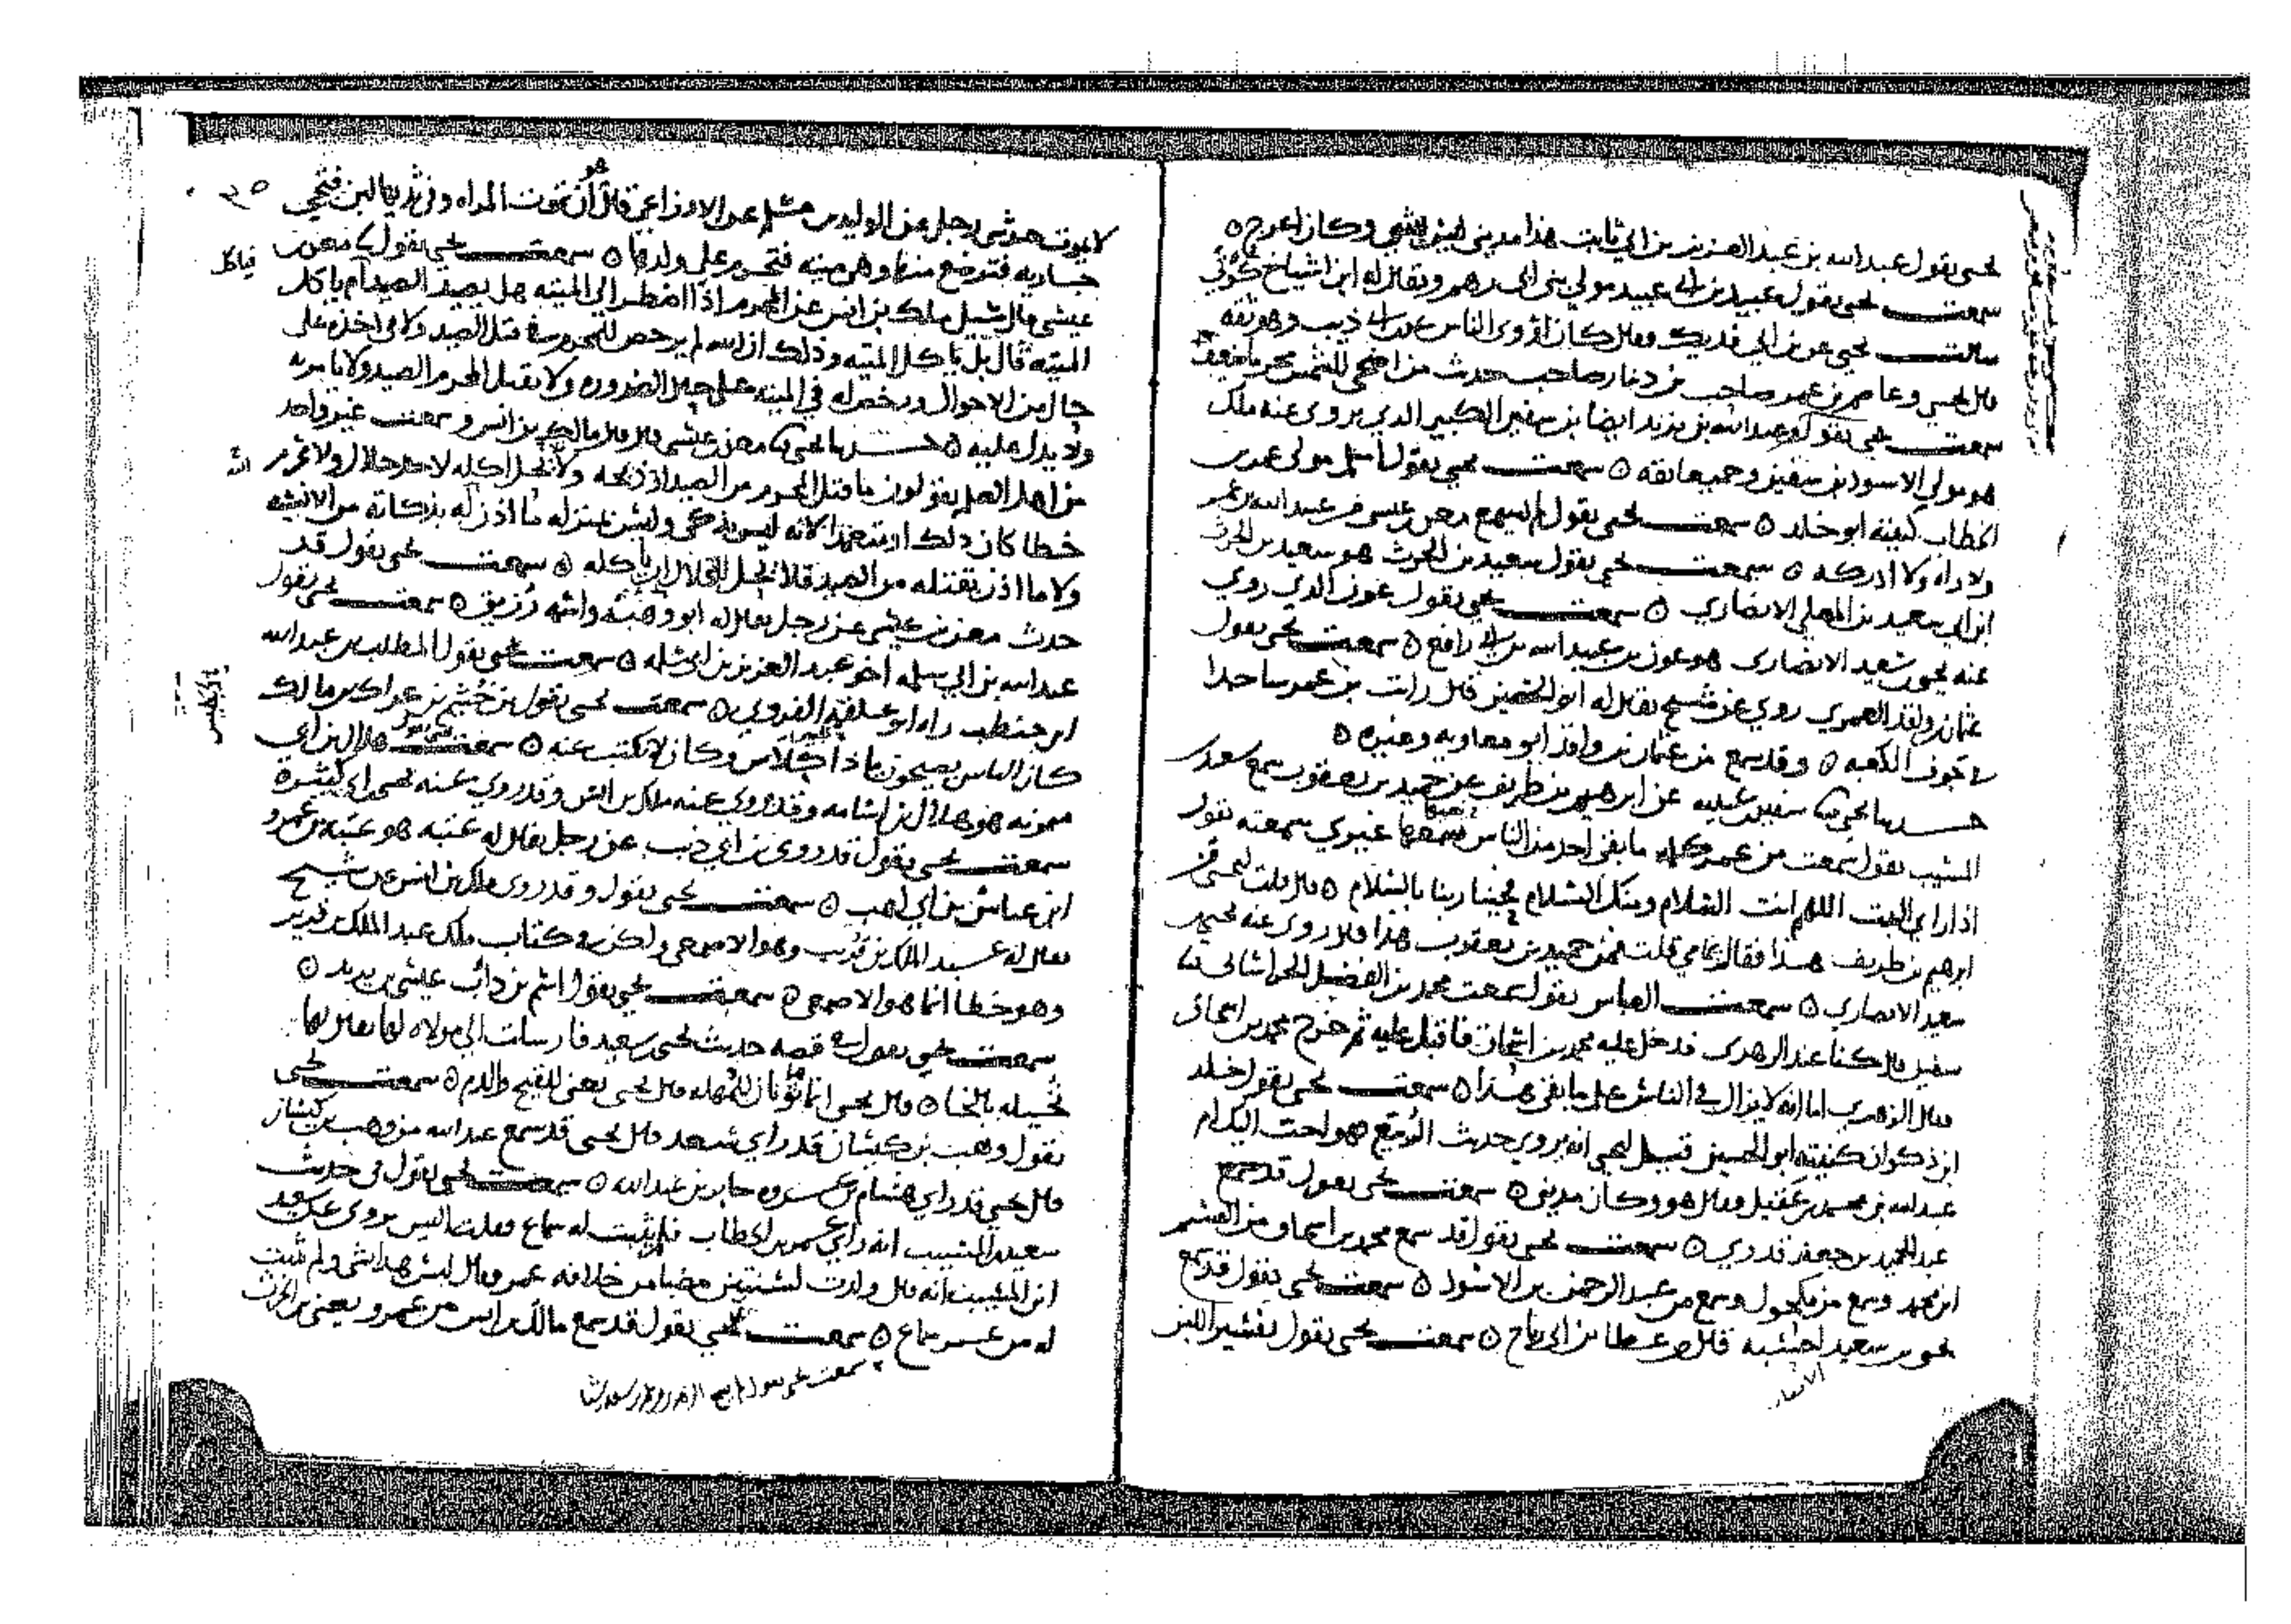 يحيى يقول عبد الله بن عبد العزيز بن ابي ثابت هذا مديني ليس بشي وكان اعرج ه
سمعت يحيى يقول عبيد بن ابي عبيد مولى بني ابي رهم ويقال له ابن اشياخ كوثى
سالت يحيى عن ابن ابي فديك وقال كان اروى الناس عن ابن ابي ذيب وهو ثقة
قال يحيى وعاصم بن عمر صاحب بن دينار صاحب حديث من اضحى للشمس محرما ضعيف
سمعت يحيى يقول عبد الله بن يزيد ايضا بن سفين الكبير الذي يروى عنه ملك
هو مولى الاسود بن سفين وحميعا ثقه ه سمعت يحيى يقول اسلم مولى عمر بن
الخطاب كنيته ابو خلد ه سمعت يحيى يقول لم يسمع معن بن عيسى من عبيد الله بن عمر
ولا راه ولا ادركه ه سمعت يحيى يقول سعيد بن الحرث هو سعيد بن الحرث
بن ابي سعيد بن المعلى الانصاري ه سمعت يحيى يقول عون الذي روى
عنه يحيى بن سعيد الانصاري هو عون بن عبيد الله بن ابي رافع ه سمعت يحيى يقول
عثمان بن واقد العمري روى عن شيخ يقال له ابو الخصين قال رايت بن عمر ساجدا
في جوف الكعبه ه وقد سمع من عثمان بن واقد ابو معاويه وغيره ه
حدثنا يحيى نا سفين بن عيينه عن ابرهيم بن طريف عن حميد بن يعقوب سمع سعيد بن
المسيب يقول سمعت من عمر كلمه ما بقي احد من الناس سمعها غيري سمعته يقول
اذا راى البيت اللهم انت السلام ومنك السلام فحينا ربنا بالسلام ه قال قلت ليحيى من
ابرهيم بن طريف هذا فقال يمامي قلت فمن حميد بن يعقوب هذا قال روى عنه يحيى بن
سعيد الانصاري ه سمعت العباس يقول سمعت محمد بن الفضل الخراساني نا
سفين قال كنا عند الزهري فدخل عليه محمد بن اسحاق فاقبل عليه ثم خرج محمد بن اسحاق
فقال الزهري اما انه لا يزال في الناس علم ما بقي هذا ه سمعت يحيى يقول خلد
بن ذكوان كنيته ابو الحسين قيل ليحيى انه يروي حديث الربيع هو احب اليك ام
عبد الله بن محمد بن عقيل وقال هو وكان مديني ه سمعت يحيى يقول قد سمع
عبد الحميد بن جعفر قدري ه سمعت يحيى يقول قد سمع محمد بن اسحاق من القسم
بن محمد وسمع من مكحول وسمع من عبد الرحمن بن الاسود ه سمعت يحيى يقول قد سمع
يحيى بن سعيد احسبه قال من عطا بن ابي رباح ه سمعت يحيى يقول تفسير اللبن
لا يموت حدثني رجل عن الوليد بن مسلم عن الاوزاعي قال هو ان تموت المراه وفي ثديها لبن فتجي
جاريه فترضع منها وهي ميته فتحرم على ولدها ه سمعت يحيى يقول نا معن بن
عيسى قال سيل ملك بن انس عن المحرم اذا اضطر الى الميته هل يصيد الصيد ام ياكل
الميته قال بل ياكل الميته وذلك ان الله لم يرخص للمحرم في قتل الصيد ولا في اخذه على
حال من الاحوال ورخص له في الميته على حال الضروره ولا يقتل المحرم الصيد ولا يامر به
ولا يدل عليه ه حدثنا يحيى نا معن بن عيسى قال قال مالك بن انس وسمعت غير واحد
من اهل العلم يقولون ما قتل المحرم من الصيد او ذبحه ولا يحل اكله لاحد حلال ولا محرم
خطا كان ذلك او متعمدا لانه ليس بذكي وليس بمنزله ما اذن له بذكاته من الانسيه
ولا ما اذن بقتله من الصيد فلا يحل للحلال ان ياكله ه سمعت يحيى يقول قد
حدث معن بن عيسى عن رجل يقال له ابو وهبه واسمه رزيق ه سمعت يحيى يقول
عبد الله بن ابي سلمه اخو عبد العزيز بن ابي سلمه ه سمعت يحيى يقول المطلب بن عبد الله
بن حنطب راه ابو علقمه الفروي ه سمعت يحيى يقول بن خثيم بن عراك بن مالك
كان الناس يصيحون به هذا جلاس وكان لا يكتب عنه ه سمعت يحيى يقول هلال بن ابي
ميمونه هو هلال بن اسامه وقد روى عنه ملك بن انس وقد روى عنه يحيى بن ابي كثير ه
سمعت يحيى يقول قد روى بن ابي ذيب عن رجل يقال له عتبه هو عتبه بن عمرو
بن عباس بن ابي لهب ه سمعت يحيى يقول وقد روى ملك بن انس عن شيخ
يقال له عبد الملك بن قريب وهو الاصمعي ولكن في كتاب ملك عبد الملك بن قرير
وهو خطا انما هو الاصمعي ه سمعت يحيى يقول اسم بن داب عيسى بن يزيد ه
سمعت يحيى يقول في قصه حديث يحيى بن سعيد فارسلت الى مولاه لها يقال لها
نخيله بالخا ه قال يحيى انما ثوبان للمهله قال يحيى يعني للقيح والدم ه سمعت يحيى
يقول وهب بن كيسان قد راى سعد قال يحيى قد سمع عبيد الله من وهب بن كيسان
قال يحيى قد راى هشام بن عروه جابر بن عبد الله ه سمعت يحيى يقول في حديث
سعيد بن المسيب انه راى عمر بن الخطاب فلم يثبت له سماع فقلت اليس يروى عن سعيد
بن المسيب انه قال ولدت لسنتين مضتا من خلافه عمر وقال ليس هذا بشي ولم يثبت
له من عمر سماع ه سمعت يحيى يقول قد سمع مالك بن انس من عمرو يعني بن الحرث